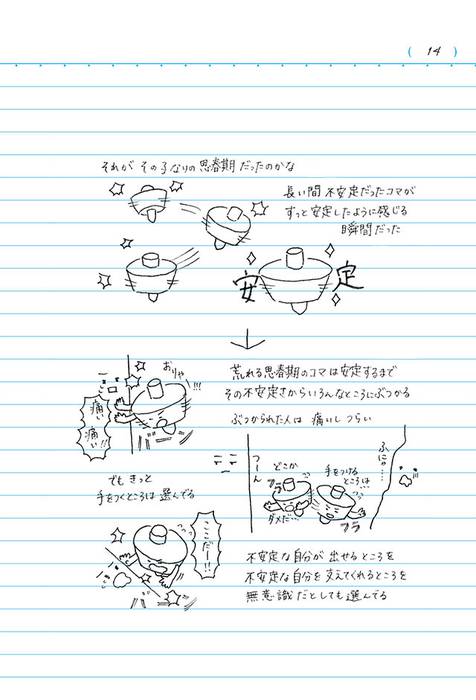 ( 14 )
それが その子なりの思春期だったのかな
長い間 不安定だったコマが
すっと安定したように感じる
瞬間だった
安定
荒れる思春期のコマは安定するまで
その不安定さからいろんなところにぶつかる
ぶつかられた人は 痛いしつらい
おりゃ
!!!
痛い
痛い!!
でも きっと
手をつくところは選んでる
ここだー!!!
つーん
どこか
フラ
ダメだ…
手をつける
ところは…
フラ
ふにゃ…
不安定な自分が出せるところを
不安定な自分を支えてくれるところを
無意識だとしても選んでる